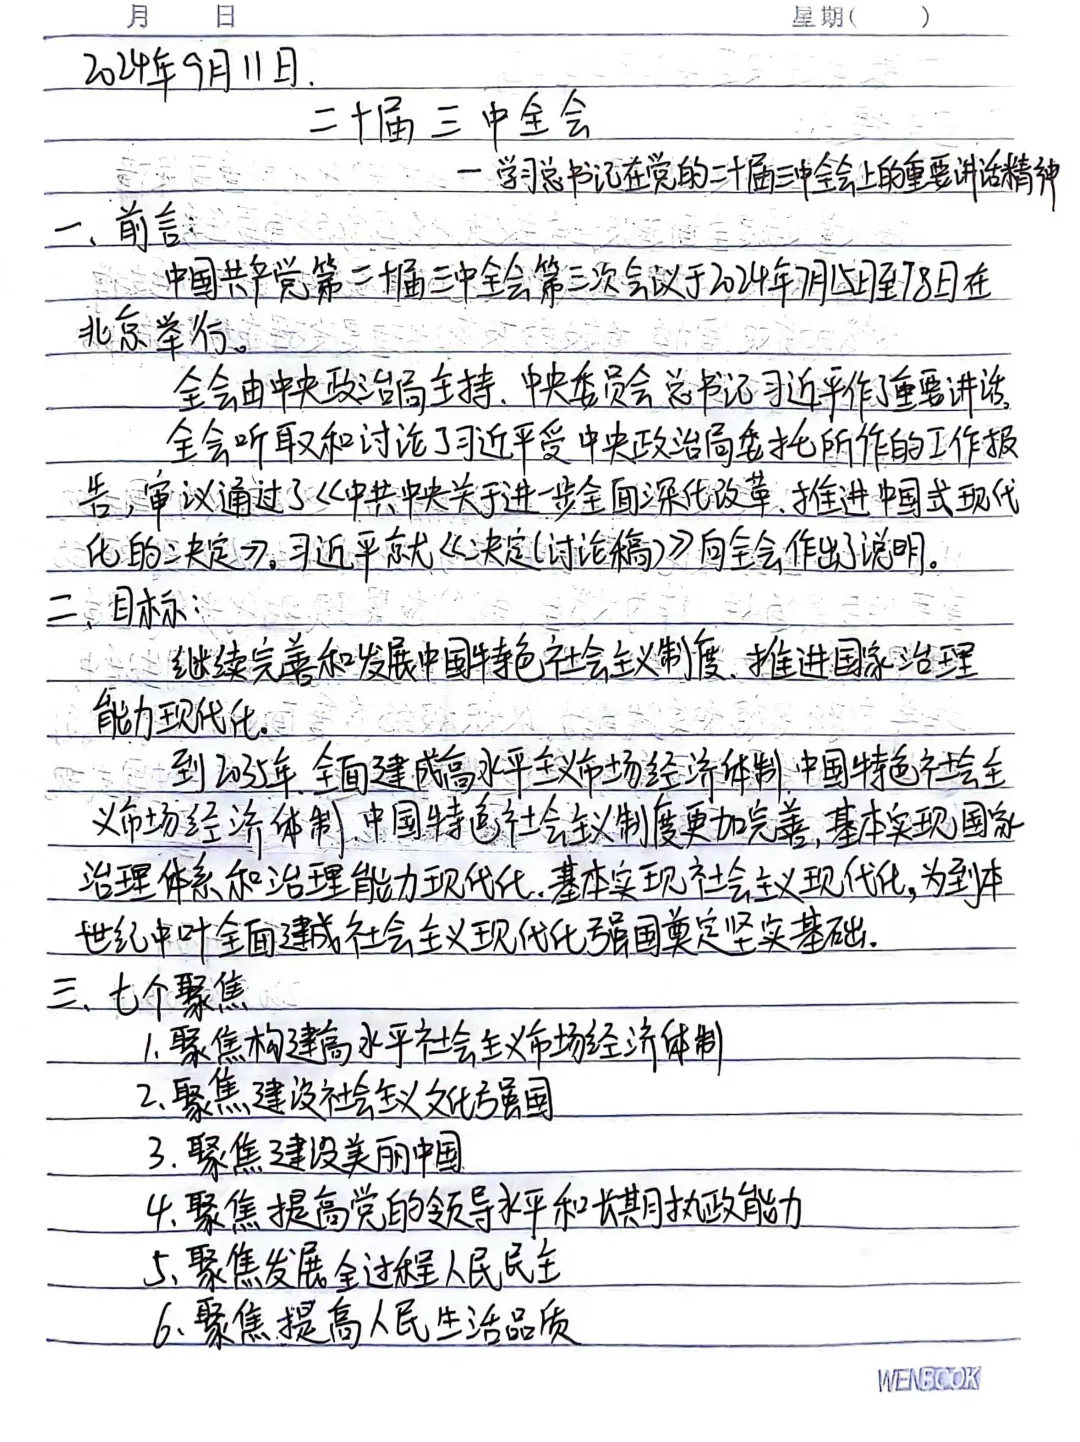 月 日 星期( )
2024年9月11日.
二十届三中全会
一学习总书记在党的二十届三中全会上的重要讲话精神
一、前言:
中国共产党第二十届三中全会第三次会议于2024年7月15日至18日在
北京举行。
全会由中央政治局主持、中央委员会总书记习近平作了重要讲话。
全会听取和讨论了习近平受中央政治局委托所作的工作报
告,审议通过了《中共中央关于进一步全面深化改革、推进中国式现代
化的决定》。习近平就《决定(讨论稿)》向全会作出了说明。
二、目标:
继续完善和发展中国特色社会主义制度、推进国家治理
能力现代化.
到2035年,全面建成高水平主义市场经济体制,中国特色社会主
义市场经济体制、中国特色社会主义制度更加完善,基本实现国家
治理体系和治理能力现代化、基本实现社会主义现代化,为到本
世纪中叶全面建成社会主义现代化强国奠定坚实基础.
三、七个聚焦
1、聚焦构建高水平社会主义市场经济体制
2、聚焦建设社会主义文化强国
3、聚焦建设美丽中国
4、聚焦提高党的领导水平和长期执政能力
5、聚焦发展全过程人民民主
6、聚焦提高人民生活品质
WENBOOK